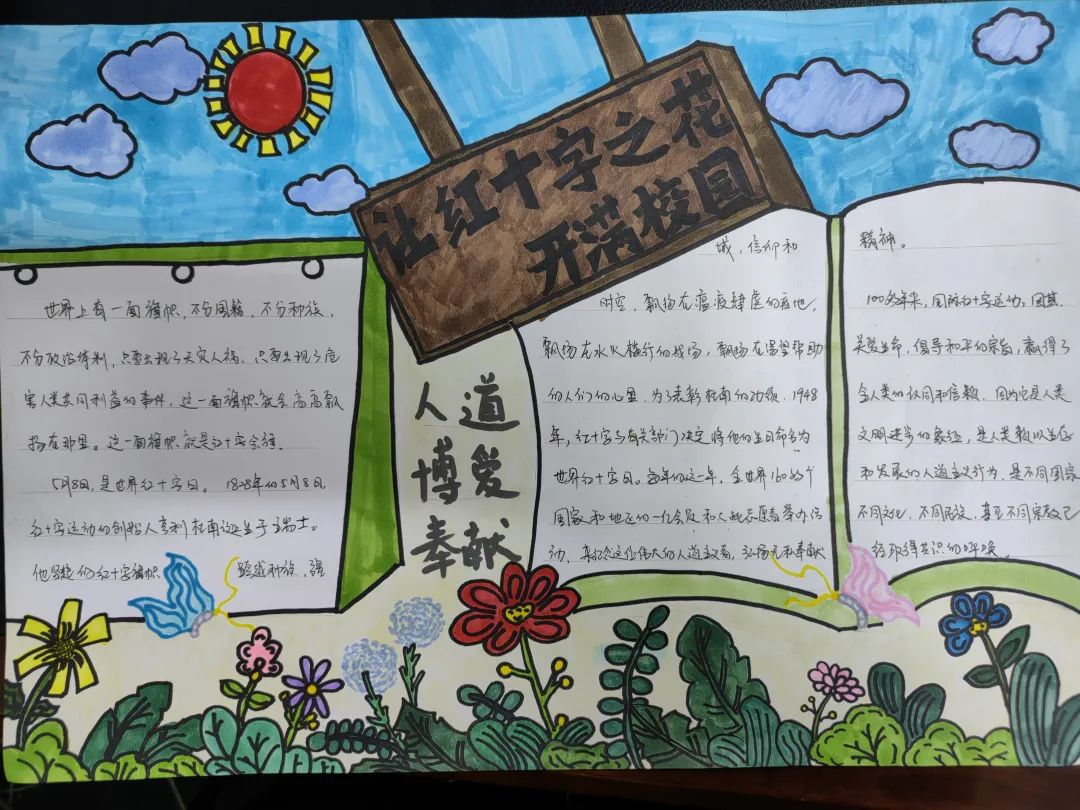 让红十字之花
开满校园
世界上有一面旗帜,不分国籍,不分种族,
不分政治体制,只要出现了天灾人祸,只要出现了危
害人类共同利益的事件,这一面旗帜就会高高飘
扬在那里。这一面旗帜就是红十字会旗。
5月8日,是世界红十字日。1828年的5月8日,
红十字运动的创始人亨利杜南诞生于瑞士。
他竖起的红十字旗帜 跨越种族、疆
人道
博爱
奉献
域、信仰和
时空,飘扬在瘟疫肆虐的疫地,
飘扬在水火横行的战场,飘扬在渴望帮助
的人们的心里。为了表彰杜南的功绩,1948
年,红十字与有关部门决定将他的生日命名为
世界红十字日。每年的这一年,全世界160多个
国家和地区的一亿会员和人批志愿者举办活
动,来纪念这位伟大的人道主义者,弘扬无私奉献
精神。
100多年来,国际红十字运动,因其
关爱生命,倡导和平的宗旨,赢得了
全人类的认同和信赖,因为它是人类
文明进步的象征,是人类赖以生存
和发展的人道主义行为,是不同国家
不同文化,不同民族,甚至不同宗教已
经取得共识的呼唤。